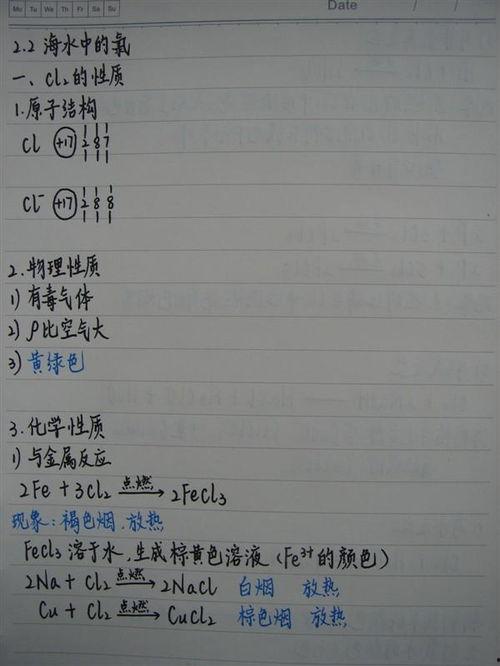 Mo Tu We Th Fr Sa Su Date / /
2.2 海水中的氯
一、Cl₂的性质
1.原子结构
Cl +17 2 8 7
Cl⁻ +17 2 8 8
2.物理性质
1) 有毒气体
2) ρ比空气大
3) 黄绿色
3.化学性质
1) 与金属反应
2Fe + 3Cl₂ 点燃→ 2FeCl₃
现象:褐色烟.放热
FeCl₃溶于水,生成棕黄色溶液(Fe³⁺的颜色)
2Na + Cl₂ 点燃→ 2NaCl 白烟 放热
Cu + Cl₂ 点燃→ CuCl₂ 棕色烟 放热